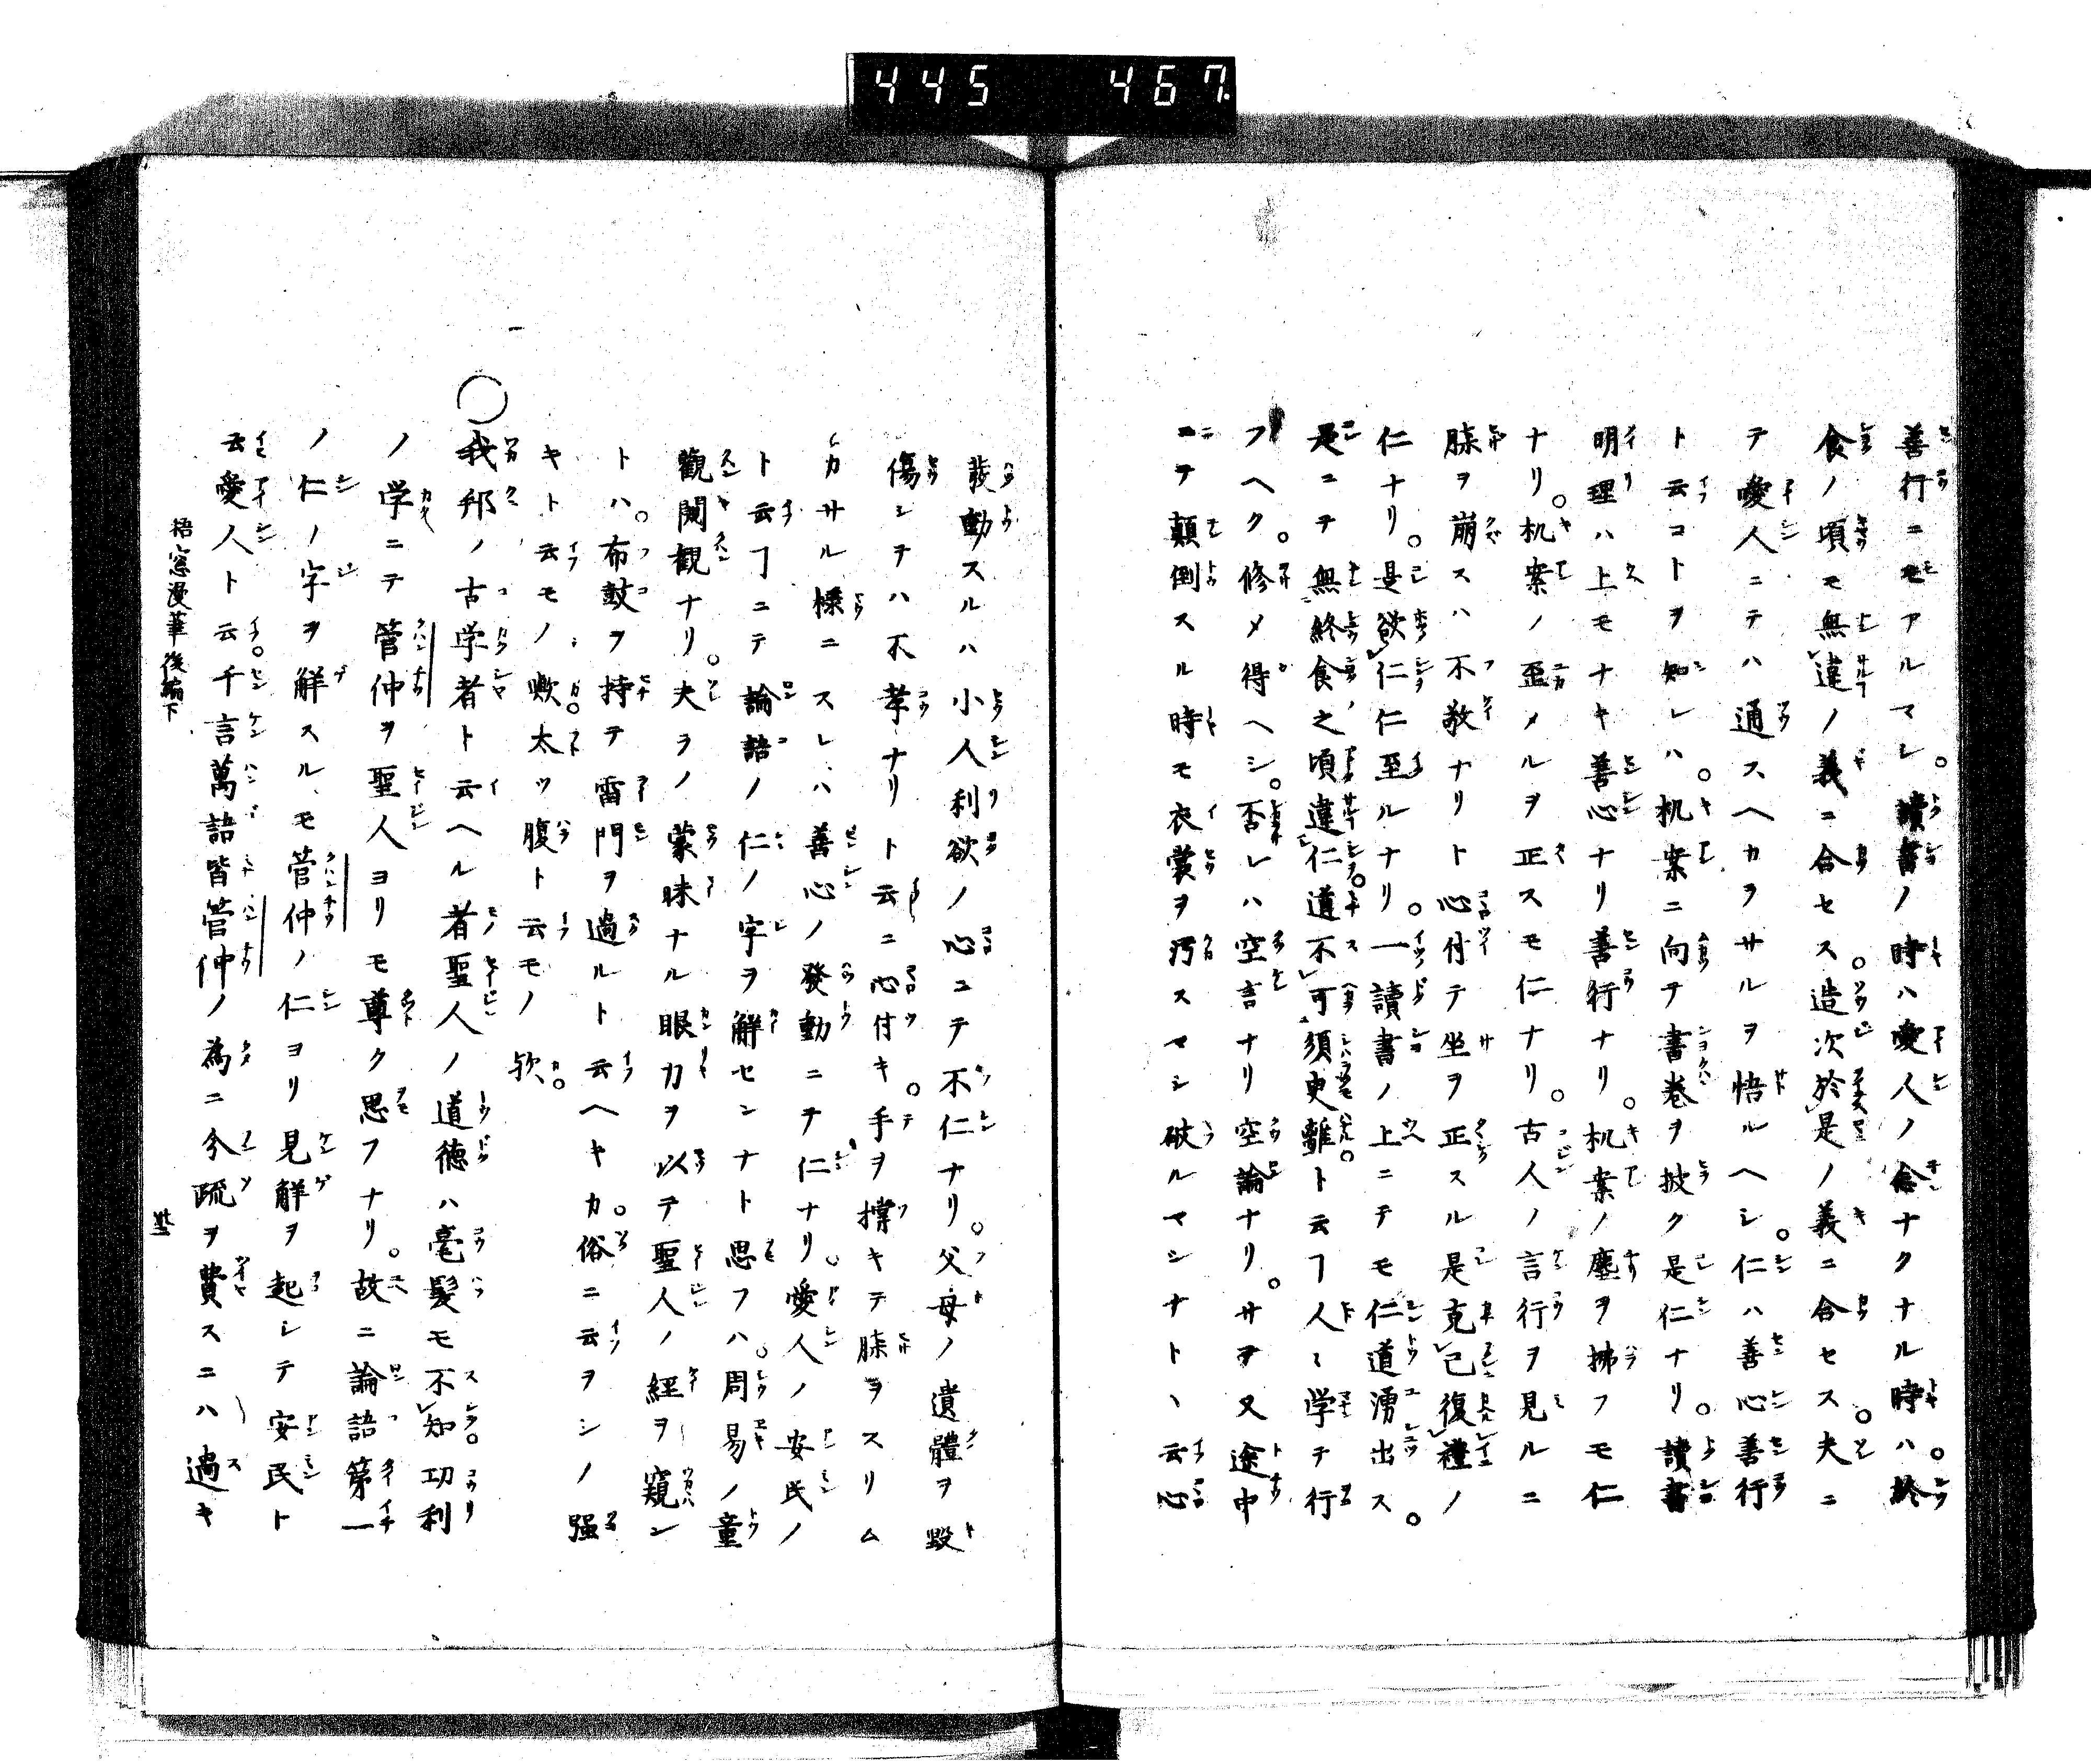 445 467
善行ニモアルマシ。讀書ノ時ハ愛人ノ念ナクナル時ハ。終
食ノ頃モ無違ノ義ニ合セス。造次於是ノ義ニ合セス。夫ニ
テ愛人ニテハ通スヘカラサルヲ悟ルヘシ。仁ハ善心善行
ト云コトヲ知レハ。机案ニ向テ書卷ヲ披ク是仁ナリ。讀書
明理ハ上モナキ善心ナリ善行ナリ。机案ノ塵ヲ拂フモ仁
ナリ。机案ノ歪メルヲ正スモ仁ナリ。古人ノ言行ヲ見ルニ
膝ヲ崩スハ不敬ナリト心付テ坐ヲ正スル是克己復禮ノ
仁ナリ。是欲仁仁至ルナリ。一讀書ノ上ニテモ仁道湧出ス。
是ニテ無終食之頃違仁道不可須臾離ト云フ人〻学テ行
フヘク。修メ得ヘシ。否レハ空言ナリ空論ナリ。サテ又途中
ニテ顛倒スル時モ衣裳ヲ汚スマシ破ルマシナトヽ云心
發動スルハ小人利欲ノ心ニテ不仁ナリ。父母ノ遺體ヲ毀
傷シテハ不孝ナリト云ニ心付キ。手ヲ撑キテ膝ヲスリム
カサル樣ニスレハ善心ノ發動ニテ仁ナリ。愛人ノ安民ノ
ト云ヿニテ論語ノ仁ノ字ヲ解センナト思フハ。周易ノ童
觀闚觀ナリ。夫ラノ蒙昧ナル眼力ヲ以テ聖人ノ經ヲ窺ン
トハ。布鼓ヲ持テ雷門ヲ過ルト云ヘキカ。俗ニ云ヲシノ强
キト云モノ歟。太ッ腹ト云モノ欤。
○我邦ノ古学者ト云ヘル者聖人ノ道徳ハ毫髮モ不知功利
ノ学ニテ管仲ヲ聖人ヨリモ尊ク思フナリ。故ニ論語第一
ノ仁ノ字ヲ解スルモ管仲ノ仁ヨリ見解ヲ起シテ安民ト
云愛人ト云。千言萬語皆管仲ノ為ニ分疏ヲ費スニハ過キ
梧窓漫筆後編下